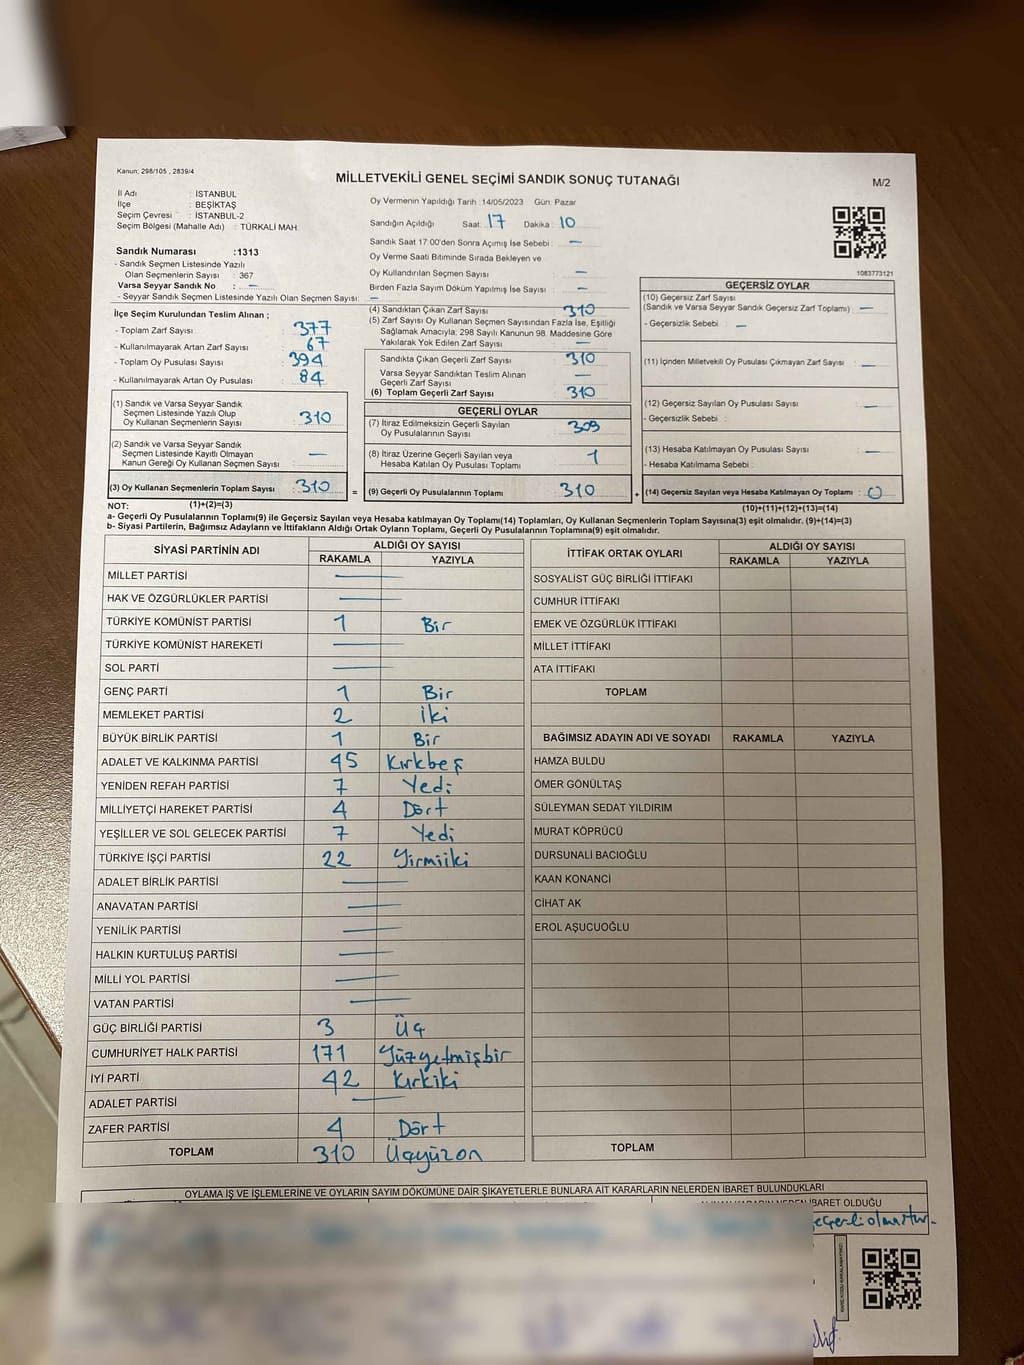 Kanun: 298/105 , 2839/4
MİLLETVEKİLİ GENEL SEÇİMİ SANDIK SONUÇ TUTANAĞI
M/2
İl Adı : İSTANBUL
İlçe : BEŞİKTAŞ
Seçim Çevresi : İSTANBUL-2
Seçim Bölgesi (Mahalle Adı) : TÜRKALİ MAH.
Sandık Numarası :1313
- Sandık Seçmen Listesinde Yazılı
Olan Seçmenlerin Sayısı : 367
Varsa Seyyar Sandık No : —
- Seyyar Sandık Seçmen Listesinde Yazılı Olan Seçmen Sayısı: —
Oy Vermenin Yapıldığı Tarih :14/05/2023 Gün: Pazar
Sandığın Açıldığı Saat: 17 Dakika : 10
Sandık Saat 17:00'den Sonra Açımış İse Sebebi : —
Oy Verme Saati Bitiminde Sırada Bekleyen ve
Oy Kullandırılan Seçmen Sayısı : —
Birden Fazla Sayım Döküm Yapılmış İse Sayısı : —
1083773121
İlçe Seçim Kurulundan Teslim Alınan ;
- Toplam Zarf Sayısı : 377
- Kullanılmayarak Artan Zarf Sayısı : 67
- Toplam Oy Pusulası Sayısı : 394
- Kullanılmayarak Artan Oy Pusulası : 84
(1) Sandık ve Varsa Seyyar Sandık
Seçmen Listesinde Yazılı Olup
Oy Kullanan Seçmen Sayısı : 310
(2) Sandık ve Varsa Seyyar Sandık
Seçmen Listesinde Kayıtlı Olmayan
Kanun Gereği Oy Kullanan Seçmen Sayısı : —
(3) Oy Kullanan Seçmenlerin Toplam Sayısı : 310
(4) Sandıktan Çıkan Zarf Sayısı : 310
(5) Zarf Sayısı Oy Kullanan Seçmen Sayısından Fazla İse, Eşitliği
Sağlamak Amacıyla; 298 Sayılı Kanunun 98. Maddesine Göre
Yakılarak Yok Edilen Zarf Sayısı : —
Sandıkta Çıkan Geçerli Zarf Sayısı : 310
Varsa Seyyar Sandıktan Teslim Alınan
Geçerli Zarf Sayısı : —
(6) Toplam Geçerli Zarf Sayısı : 310
GEÇERLİ OYLAR
(7) İtiraz Edilmeksizin Geçerli Sayılan
Oy Pusulalarının Sayısı : 309
(8) İtiraz Üzerine Geçerli Sayılan veya
Hesaba Katılan Oy Pusulası Toplamı : 1
= (9) Geçerli Oy Pusulalarının Toplamı : 310
GEÇERSİZ OYLAR
(10) Geçersiz Zarf Sayısı
(Sandık ve Varsa Seyyar Sandık Geçersiz Zarf Toplamı) : —
- Geçersizlik Sebebi : —
(11) İçinden Milletvekili Oy Pusulası Çıkmayan Zarf Sayısı : —
(12) Geçersiz Sayılan Oy Pusulası Sayısı : —
- Geçersizlik Sebebi :
(13) Hesaba Katılmayan Oy Pusulası Sayısı : —
- Hesaba Katılmama Sebebi :
+ (14) Geçersiz Sayılan veya Hesaba Katılmayan Oy Toplamı : 0
NOT: (1)+(2)=(3)
(10)+(11)+(12)+(13)=(14)
a- Geçerli Oy Pusulalarının Toplamı(9) ile Geçersiz Sayılan veya Hesaba katılmayan Oy Toplamı(14) Toplamları, Oy Kullanan Seçmenlerin Toplam Sayısına(3) eşit olmalıdır. (9)+(14)=(3)
b- Siyasi Partilerin, Bağımsız Adayların ve İttifakların Aldığı Ortak Oyların Toplamı, Geçerli Oy Pusulalarının Toplamına(9) eşit olmalıdır.
SİYASİ PARTİNİN ADI ALDIĞI OY SAYISI
RAKAMLA YAZIYLA
MİLLET PARTİSİ —
HAK VE ÖZGÜRLÜKLER PARTİSİ —
TÜRKİYE KOMÜNİST PARTİSİ 1 Bir
TÜRKİYE KOMÜNİST HAREKETİ —
SOL PARTİ —
GENÇ PARTİ 1 Bir
MEMLEKET PARTİSİ 2 İki
BÜYÜK BİRLİK PARTİSİ 1 Bir
ADALET VE KALKINMA PARTİSİ 45 Kırkbeş
YENİDEN REFAH PARTİSİ 7 Yedi
MİLLİYETÇİ HAREKET PARTİSİ 4 Dört
YEŞİLLER VE SOL GELECEK PARTİSİ 7 Yedi
TÜRKİYE İŞÇİ PARTİSİ 22 Yirmiiki
ADALET BİRLİK PARTİSİ —
ANAVATAN PARTİSİ —
YENİLİK PARTİSİ —
HALKIN KURTULUŞ PARTİSİ —
MİLLİ YOL PARTİSİ —
VATAN PARTİSİ —
GÜÇ BİRLİĞİ PARTİSİ 3 Üç
CUMHURİYET HALK PARTİSİ 171 Yüzyetmişbir
İYİ PARTİ 42 Kırkiki
ADALET PARTİSİ —
ZAFER PARTİSİ 4 Dört
TOPLAM 310 Üçyüzon
İTTİFAK ORTAK OYLARI ALDIĞI OY SAYISI
RAKAMLA YAZIYLA
SOSYALİST GÜÇ BİRLİĞİ İTTİFAKI
CUMHUR İTTİFAKI
EMEK VE ÖZGÜRLÜK İTTİFAKI
MİLLET İTTİFAKI
ATA İTTİFAKI
TOPLAM
BAĞIMSIZ ADAYIN ADI VE SOYADI RAKAMLA YAZIYLA
HAMZA BULDU
ÖMER GÖNÜLTAŞ
SÜLEYMAN SEDAT YILDIRIM
MURAT KÖPRÜCÜ
DURSUNALİ BACIOĞLU
KAAN KONANCİ
CİHAT AK
EROL AŞUCUOĞLU
TOPLAM
OYLAMA İŞ VE İŞLEMLERİNE VE OYLARIN SAYIM DÖKÜMÜNE DAİR ŞİKAYETLERLE BUNLARA AİT KARARLARIN NELERDEN İBARET BULUNDUKLARI
İBARET OLDUĞU
geçerli olmuştur.